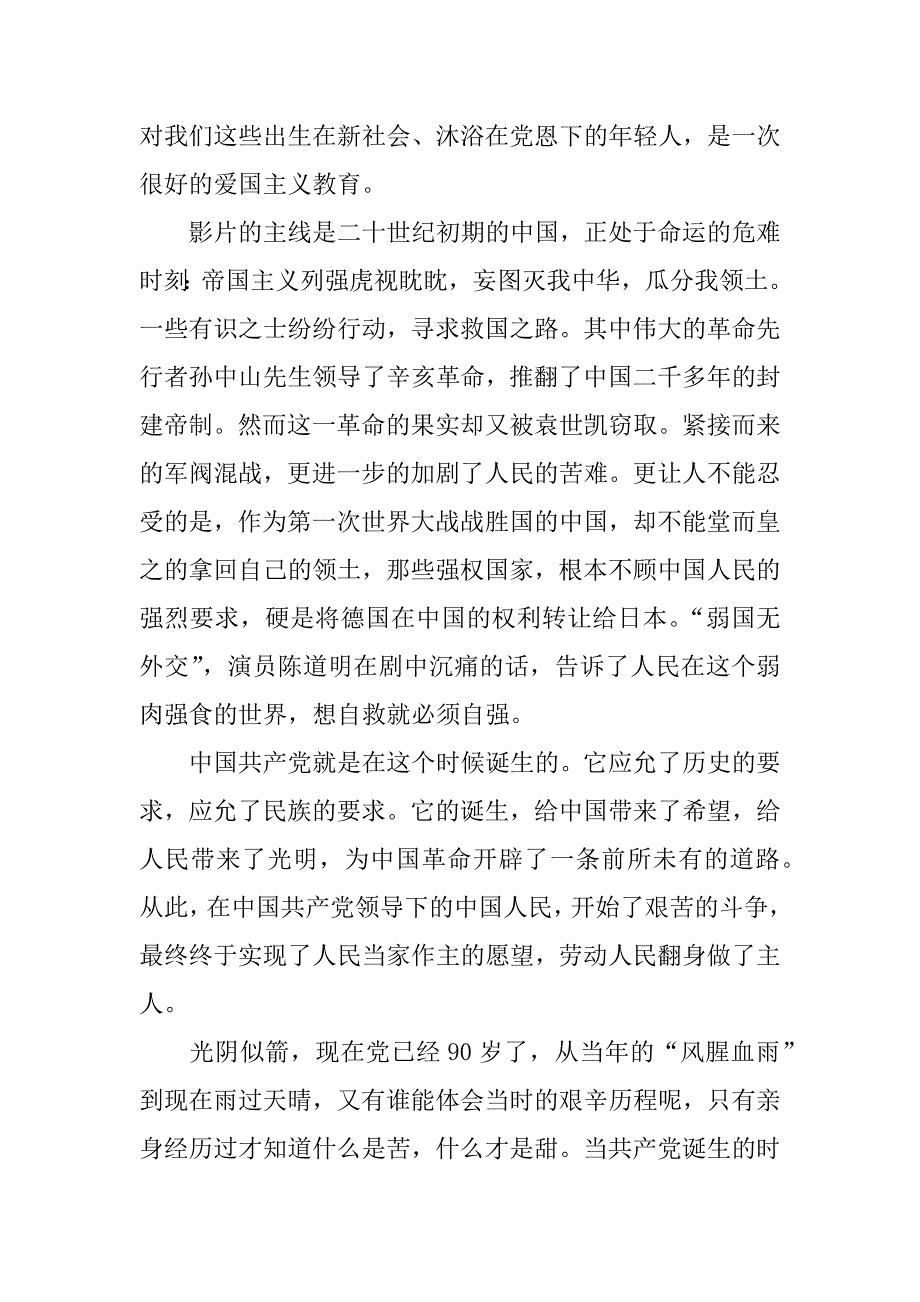 对我们这些出生在新社会、沐浴在党恩下的年轻人，是一次
很好的爱国主义教育。
影片的主线是二十世纪初期的中国，正处于命运的危难
时刻：帝国主义列强虎视眈眈，妄图灭我中华，瓜分我领土。
一些有识之士纷纷行动，寻求救国之路。其中伟大的革命先
行者孙中山先生领导了辛亥革命，推翻了中国二千多年的封
建帝制。然而这一革命的果实却又被袁世凯窃取。紧接而来
的军阀混战，更进一步的加剧了人民的苦难。更让人不能忍
受的是，作为第一次世界大战战胜国的中国，却不能堂而皇
之的拿回自己的领土，那些强权国家，根本不顾中国人民的
强烈要求，硬是将德国在中国的权利转让给日本。“弱国无
外交”，演员陈道明在剧中沉痛的话，告诉了人民在这个弱
肉强食的世界，想自救就必须自强。
中国共产党就是在这个时候诞生的。它应允了历史的要
求，应允了民族的要求。它的诞生，给中国带来了希望，给
人民带来了光明，为中国革命开辟了一条前所未有的道路。
从此，在中国共产党领导下的中国人民，开始了艰苦的斗争，
最终终于实现了人民当家作主的愿望，劳动人民翻身做了主
人。
光阴似箭，现在党已经 90 岁了，从当年的“风腥血雨”
到现在雨过天晴，又有谁能体会当时的艰辛历程呢，只有亲
身经历过才知道什么是苦，什么才是甜。当共产党诞生的时